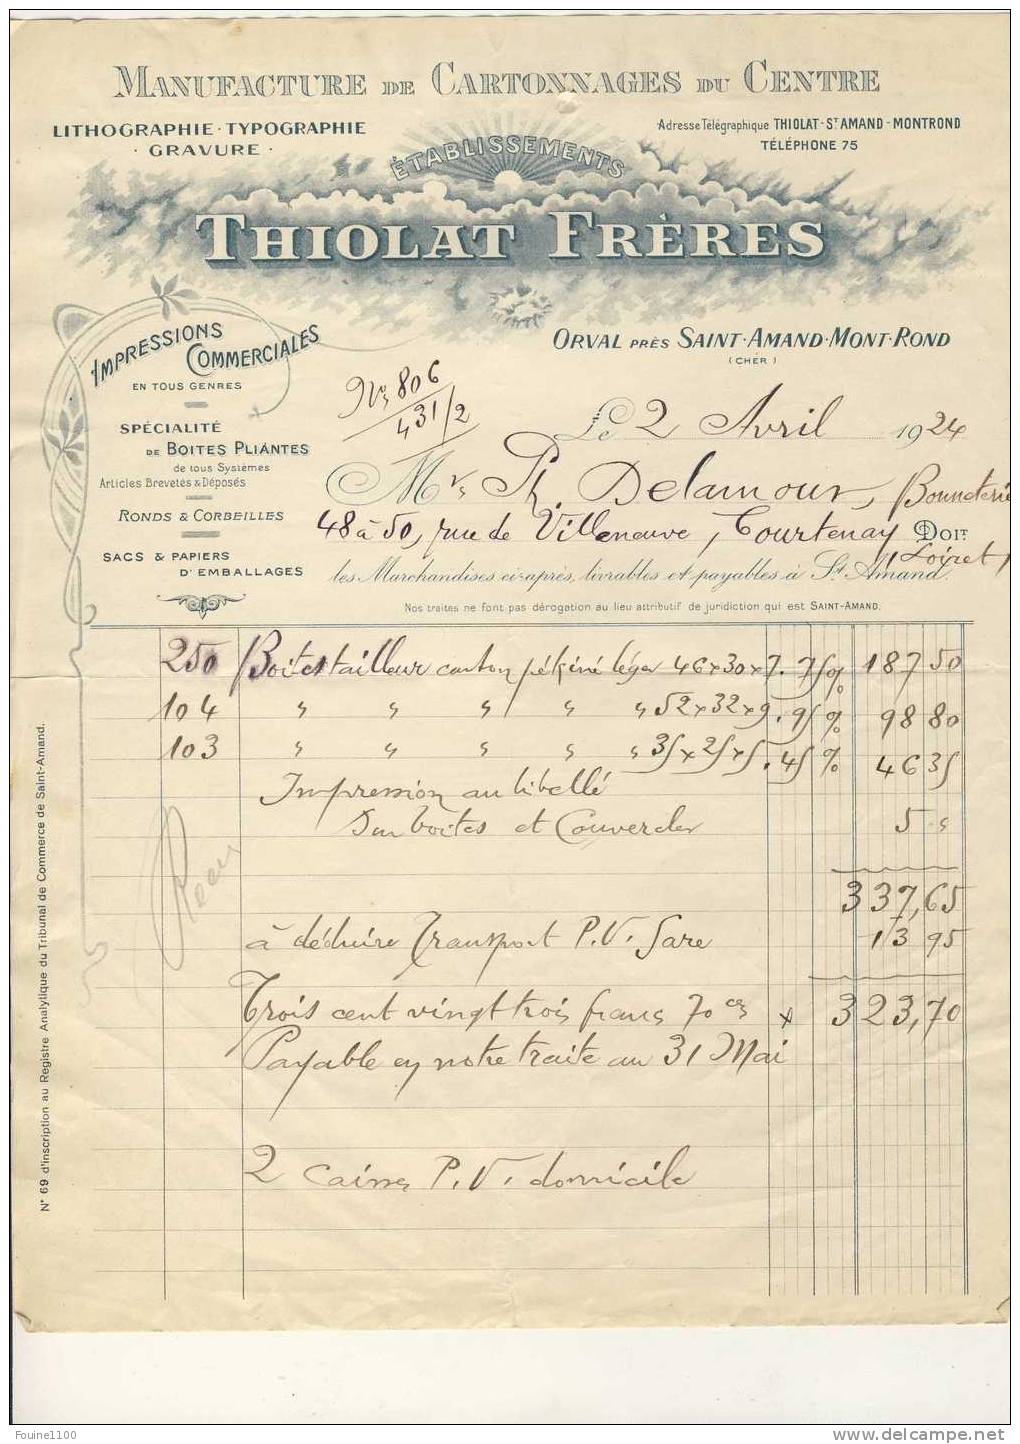 MANUFACTURE DE CARTONNAGES DU CENTRE
LITHOGRAPHIE · TYPOGRAPHIE
· GRAVURE ·
Adresse Télégraphique THIOLAT - ST AMAND - MONTROND
TÉLÉPHONE 75
ÉTABLISSEMENTS
THIOLAT FRÈRES
ORVAL PRÈS SAINT-AMAND-MONT-ROND
(CHER)
IMPRESSIONS
COMMERCIALES
EN TOUS GENRES
SPÉCIALITÉ
DE BOITES PLIANTES
de tous Systèmes
Articles Brevetés & Déposés
RONDS & CORBEILLES
SACS & PAPIERS
D'EMBALLAGES
Nos 806
431/2
Le 2 Avril 1924
Mrs Ph. Delamour, Bonneterie
48 à 50, rue de Villeneuve, Courtenay DOIT
(Loiret)
les Marchandises ci-après, livrables et payables à St Amand.
Nos traites ne font pas dérogation au lieu attributif de juridiction qui est SAINT-AMAND.
250 Boites tailleur carton pékiné léger 46x30x7. 75 % 187 50
104 " " " " " 52x32x9. 95 % 98 80
103 " " " " " 35x25x5. 45 % 46 35
Impression au libellé
Sur boites et Couvercles 5 "
337,65
à déduire Transport P.V. Gare 13 95
Trois cent vingt trois francs 70 ces x 323,70
Payable en notre traite au 31 Mai
2 caisses P.V. domicile
N° 69 d'inscription au Registre Analytique du Tribunal de Commerce de Saint-Amand.
Founine1100
www.delcampe.net